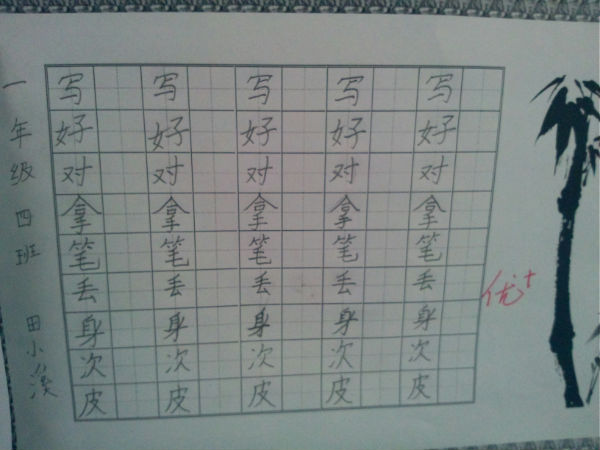 写 写 写 写 写
好 好 好 好 好
对 对 对 对 对
拿 拿 拿 拿 拿
笔 笔 笔 笔 笔
丢 丢 丢 丢 丢
身 身 身 身 身
次 次 次 次 次
皮 皮 皮 皮 皮
一年级四班 田小溪
优+